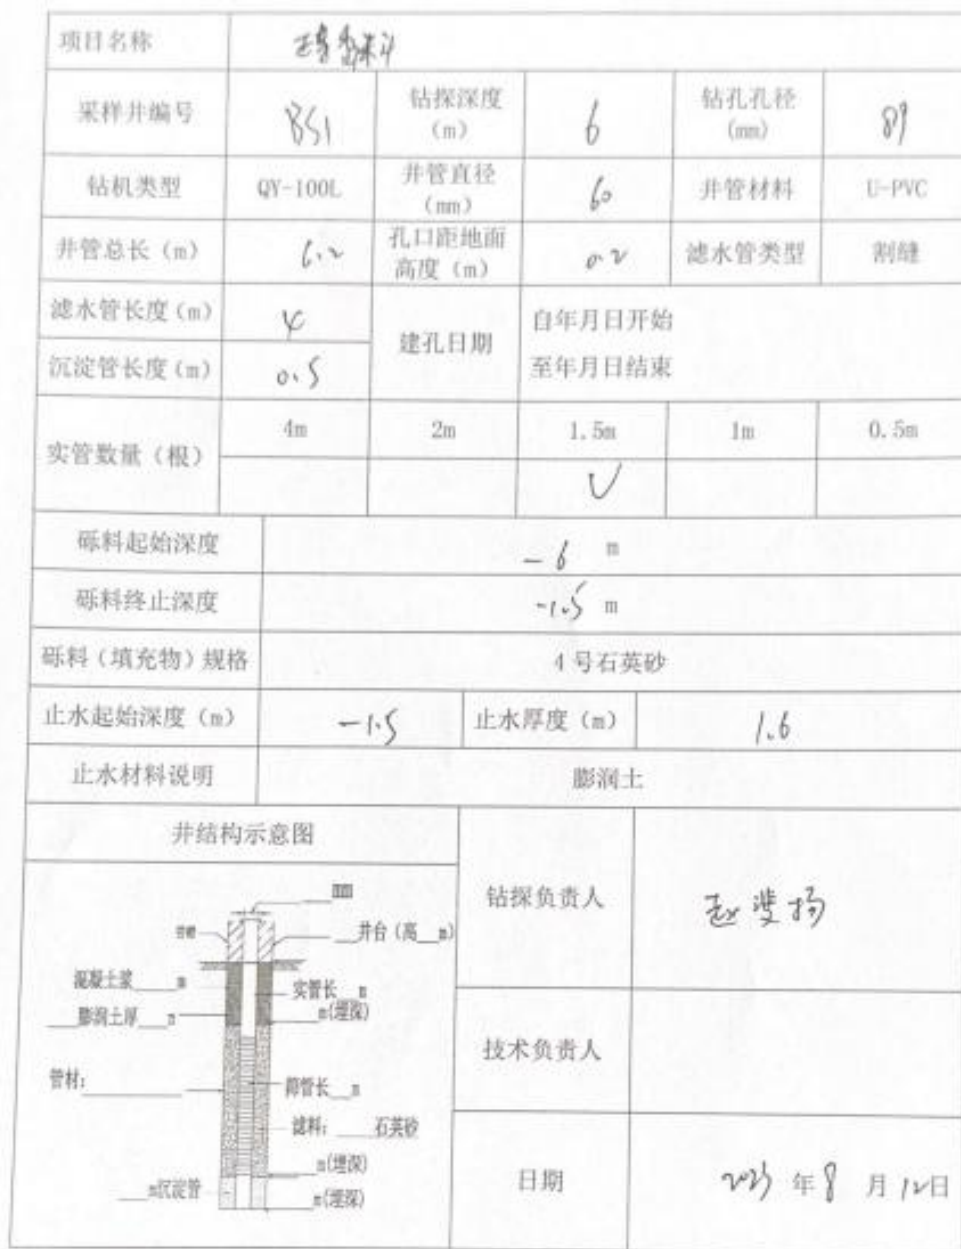 项目名称
采样井编号 BS1 钻探深度（m） 6 钻孔孔径（mm） 89
钻机类型 QY-100L 井管直径（mm） 60 井管材料 U-PVC
井管总长（m） 6.2 孔口距地面高度（m） 0.2 滤水管类型 割缝
滤水管长度（m） 4 建孔日期 自年月日开始
沉淀管长度（m） 0.5 至年月日结束
实管数量（根） 4m 2m 1.5m 1m 0.5m
√
砾料起始深度 -6 m
砾料终止深度 -1.5 m
砾料（填充物）规格 4号石英砂
止水起始深度（m） -1.5 止水厚度（m） 1.6
止水材料说明 膨润土
井结构示意图
mm
井台（高__m）
混凝土浆____m
实管长__m
m(埋深)
___膨润土厚___m
管材：________
滤料：___石英砂
__m(埋深)
___m沉淀管
__m(埋深)
钻探负责人
技术负责人
日期 2023 年 8 月 12日